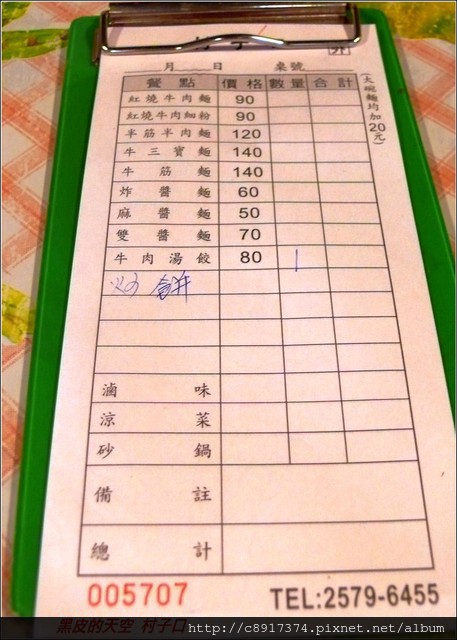 村子口 外
月 日 桌號
餐點 價格 數量 合計
紅燒牛肉麵 90
紅燒牛肉細粉 90
半筋半肉麵 120
牛三寶麵 140
牛筋麵 140
炸醬麵 60
麻醬麵 50
雙醬麵 70
牛肉湯餃 80 1
(大碗麵均加20元)
滷味
涼菜
砂鍋
備註
總計
005707 TEL:2579-6455
黑皮的天空 村子口 http://c8917374.pixnet.net/album